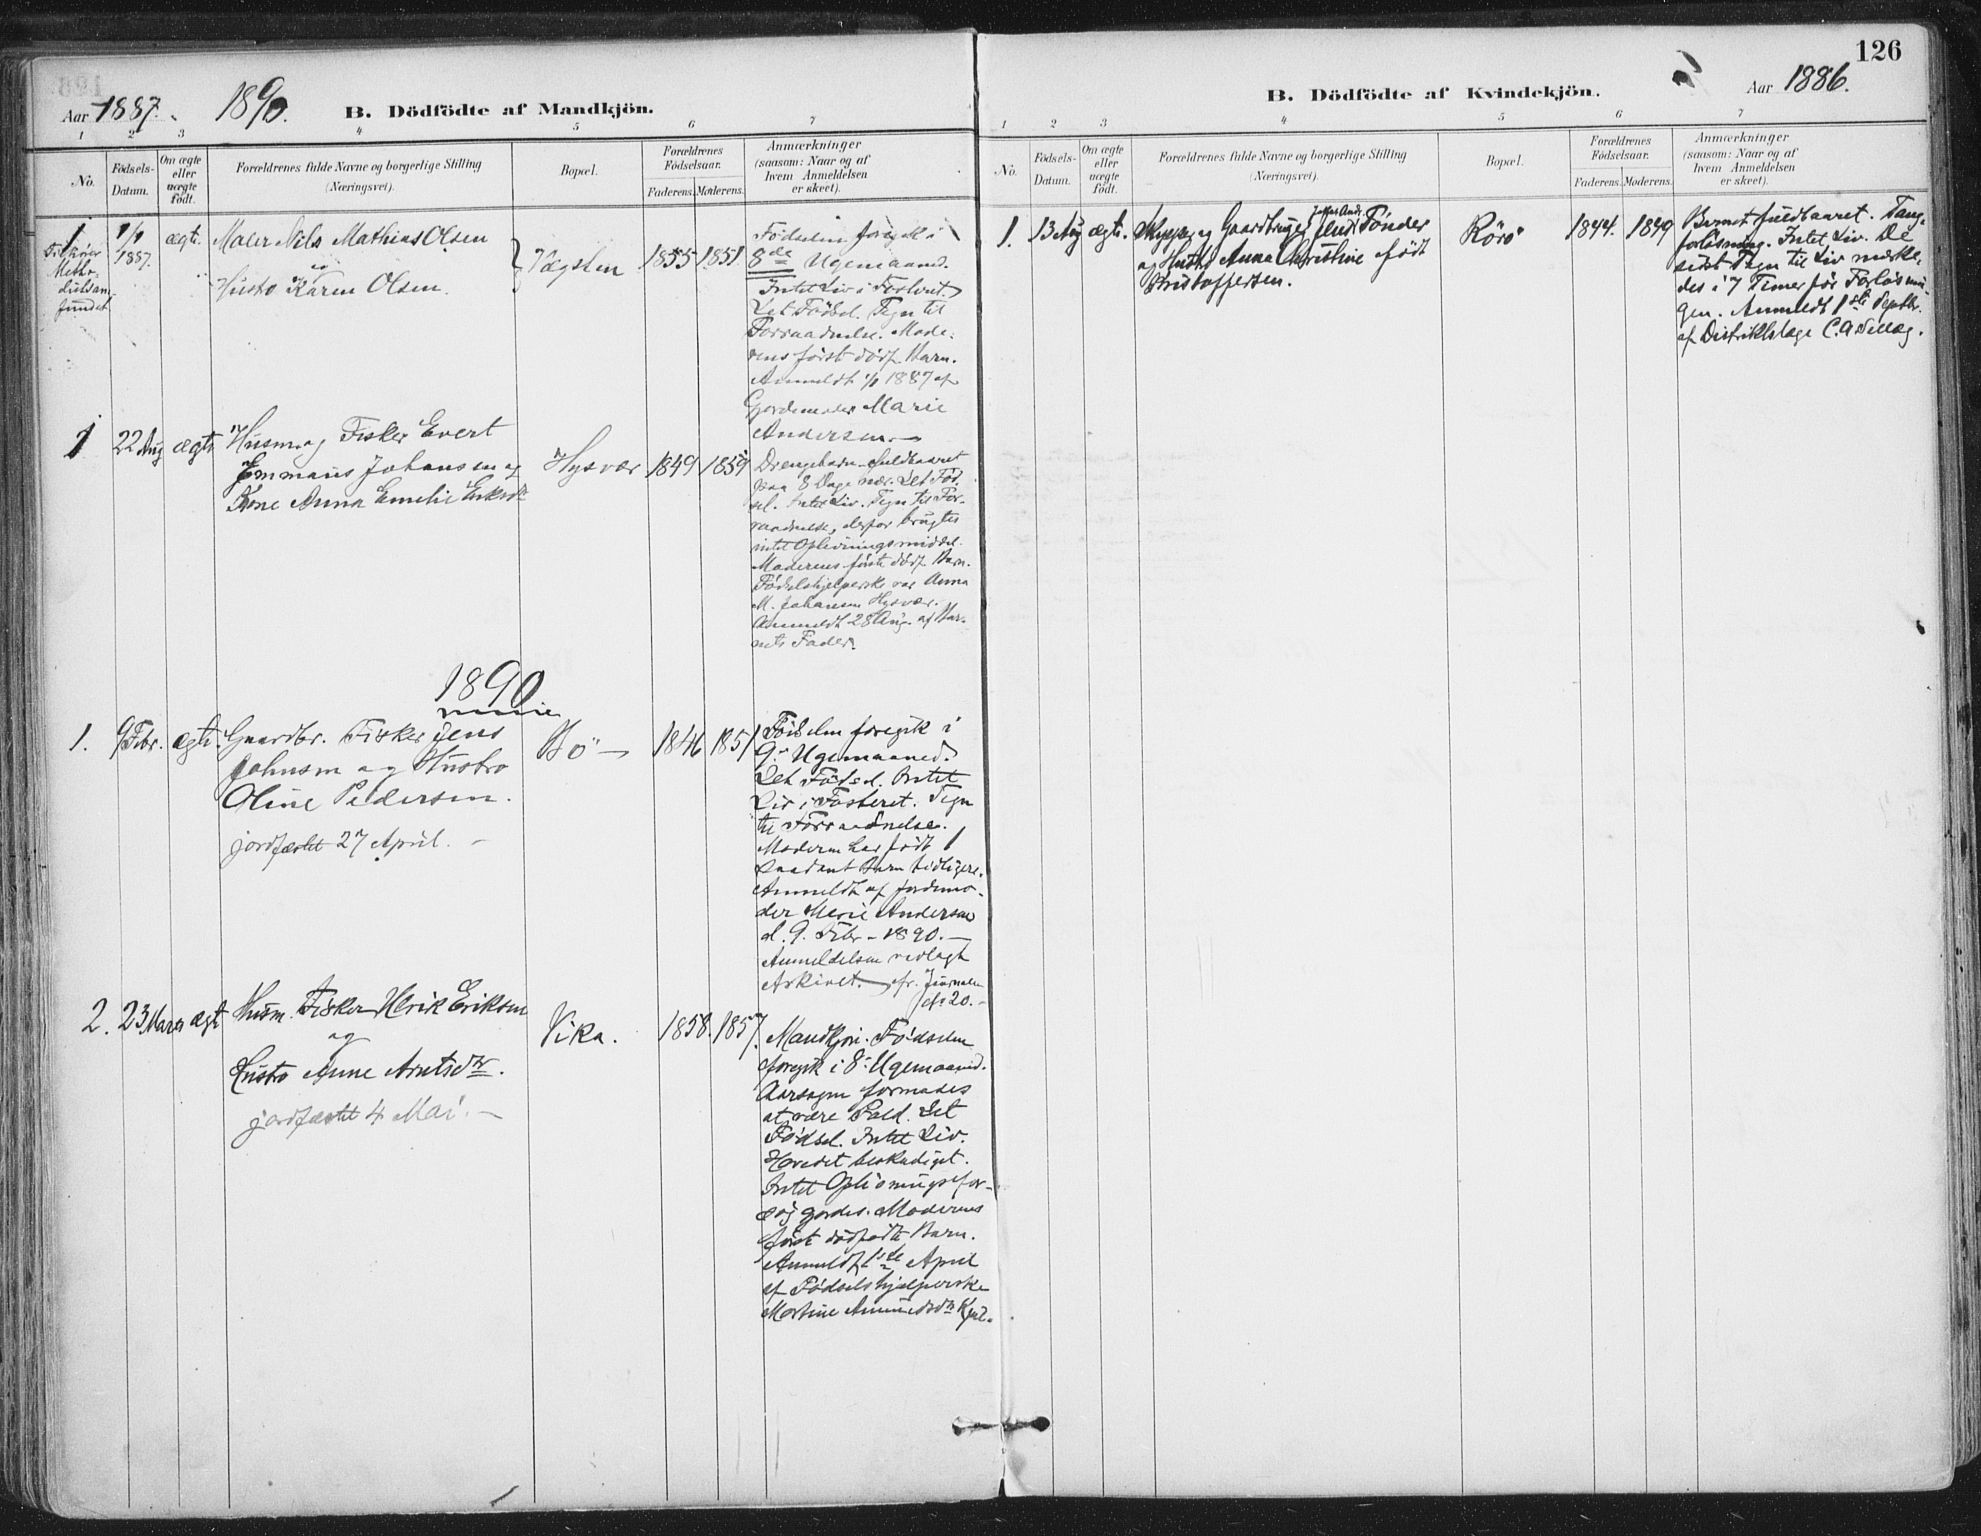 126
Aar 1887. 1890.
B. Dödfödte af Mandkjön.
1 2 3 4 5 6 7
No.
Födsels-Datum.
Om ægte eller uægte födt.
Forældrenes fulde Navne og borgerlige Stilling
(Næringsvei).
Bopæl.
Forældrenes Födselsaar.
Faderens. Moderens.
Anmærkninger
(saasom: Naar og af
hvem Anmeldelsen
er skeet).
1 1/1 1887. ægte. Maler Nils Mathias Olsen
og
Hustro Karen Olsen.
Tilhører
Metho-
distsam-
fundet
Vægsten 1855 1851
Födselen foregik i
8de Ugemaaned.
Intet Liv i Fosteret.
Let Födsel. Tegn til
Forraadnelse. Mode-
rens först dödf. Barn.
Anmeldt 1/1 1887 af
Gjordemoder Marie
Andersen.
1 22 Aug ægte Husm. og Fisker Evert
Emmaus Johansen og
Kone Anna Emelie Eriksdr
Hysvær 1849 1859
Drengebarn fuldbaaret
paa 8 Dage nær. Let Föd-
sel. Intet Liv. Tegn til For-
raadnelse, derfor brugtes
intet Oplivningsmiddel.
Moderens förste dödf. Barn.
Födselshjelperske var Anna
M. Johansen Hysvær.
Anmeldt 28 Aug. af Bar-
nets Fader.
1890
1. 9 Febr. ægte. Gaardbr. Fisker Jens
Johnsen og Hustro
Oline Pedersen.
jordfæstet 27 April. –
Bö – 1846 1851
Födselen foregik i
9. Ugemaaned.
Let Födsel. Intet
Liv i Fosteret. Tegn
til Forraadnelse.
Moderen har födt 1
saadant Barn tidligere.
Anmeldt af Jordemo-
der Marie Andersen
d. 9. Febr – 1890. –
Anmeldelsen vedlagt
Arkivet. – cfr. Journalen
20. –
2. 23 Marts ægte Husm. Fisker Ulrik Eriksen
og
Hustro Anne Arntsdtr.
jordfæstet 4 Mai. –
Vika. 1858. 1857.
Mandkjön. Födselen
foregik i 8. Ugemaaned.
Aarsagen formodes
at være Fald. Let
Födsel. Intet Liv.
Hovedet beskadiget.
Intet Oplivningsfor-
søg gjordes. Moderens
först dödfödte Barn.
Anmeldt 1ste April
af Födselshjælperske
Martine Amundsdtr
Aar 1886.
B. Dödfödte af Kvindekjön.
1 2 3 4 5 6 7
No.
Födsels-Datum.
Om ægte eller uægte födt.
Forældrenes fulde Navne og borgerlige Stilling
(Næringsvei).
Bopæl.
Forældrenes Födselsaar.
Faderens. Moderens.
Anmærkninger
(saasom: Naar og af
hvem Anmeldelsen
er skeet).
1. 13 Aug ægte. og Gaardbruger Tönder
og Hustro Anna Christine född
Kristoffersen.
Rörö 1844. 1849
Barnet fuldbaaret. Tang-
forlösning. Intet Liv. De
sidste Tegn til Liv mærke-
des i 7 Timer för Forlösnin-
gen. Anmeldt 1ste Septbr.
af Distriktslæge C. A.